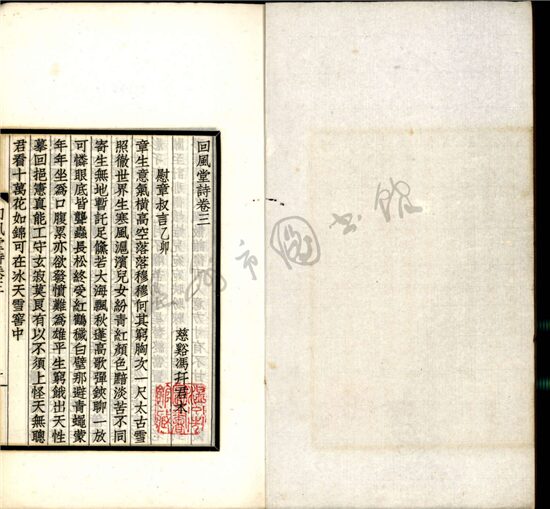 回風堂詩卷三
慈谿馮幵君木
慰章叔言乙卯
章生意氣橫高空落落穆穆何其窮胸次一尺太古雪
照徹世界生寒風滬濱兒女紛青紅顏色黯淡苦不同
寄生無地暫託足儻若大海飄秋蓬高歌彈鋏聊一放
可憐眼底皆聾蟲長松終受紅鶴穢白璧那避青蠅蒙
年年坐為口腹累亦欲發憤難為雄平生窮餓出天性
摹回挹憲真能工守玄寂莫良有以不須上怪天無聰
君看十萬花如錦可在冰天雪窖中
回風堂詩卷三
一